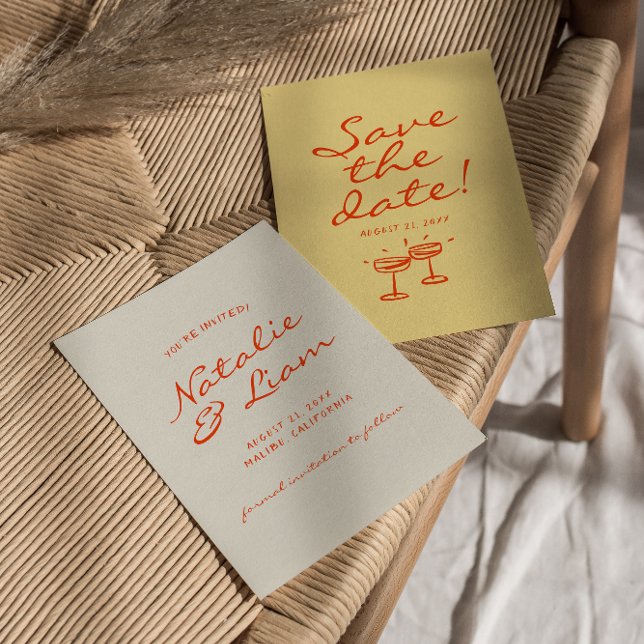 Save
the
date!
AUGUST 21, 20XX
YOU'RE INVITED!
Natalie
& Liam
AUGUST 21, 20XX
MALIBU, CALIFORNIA
formal invitation to follow